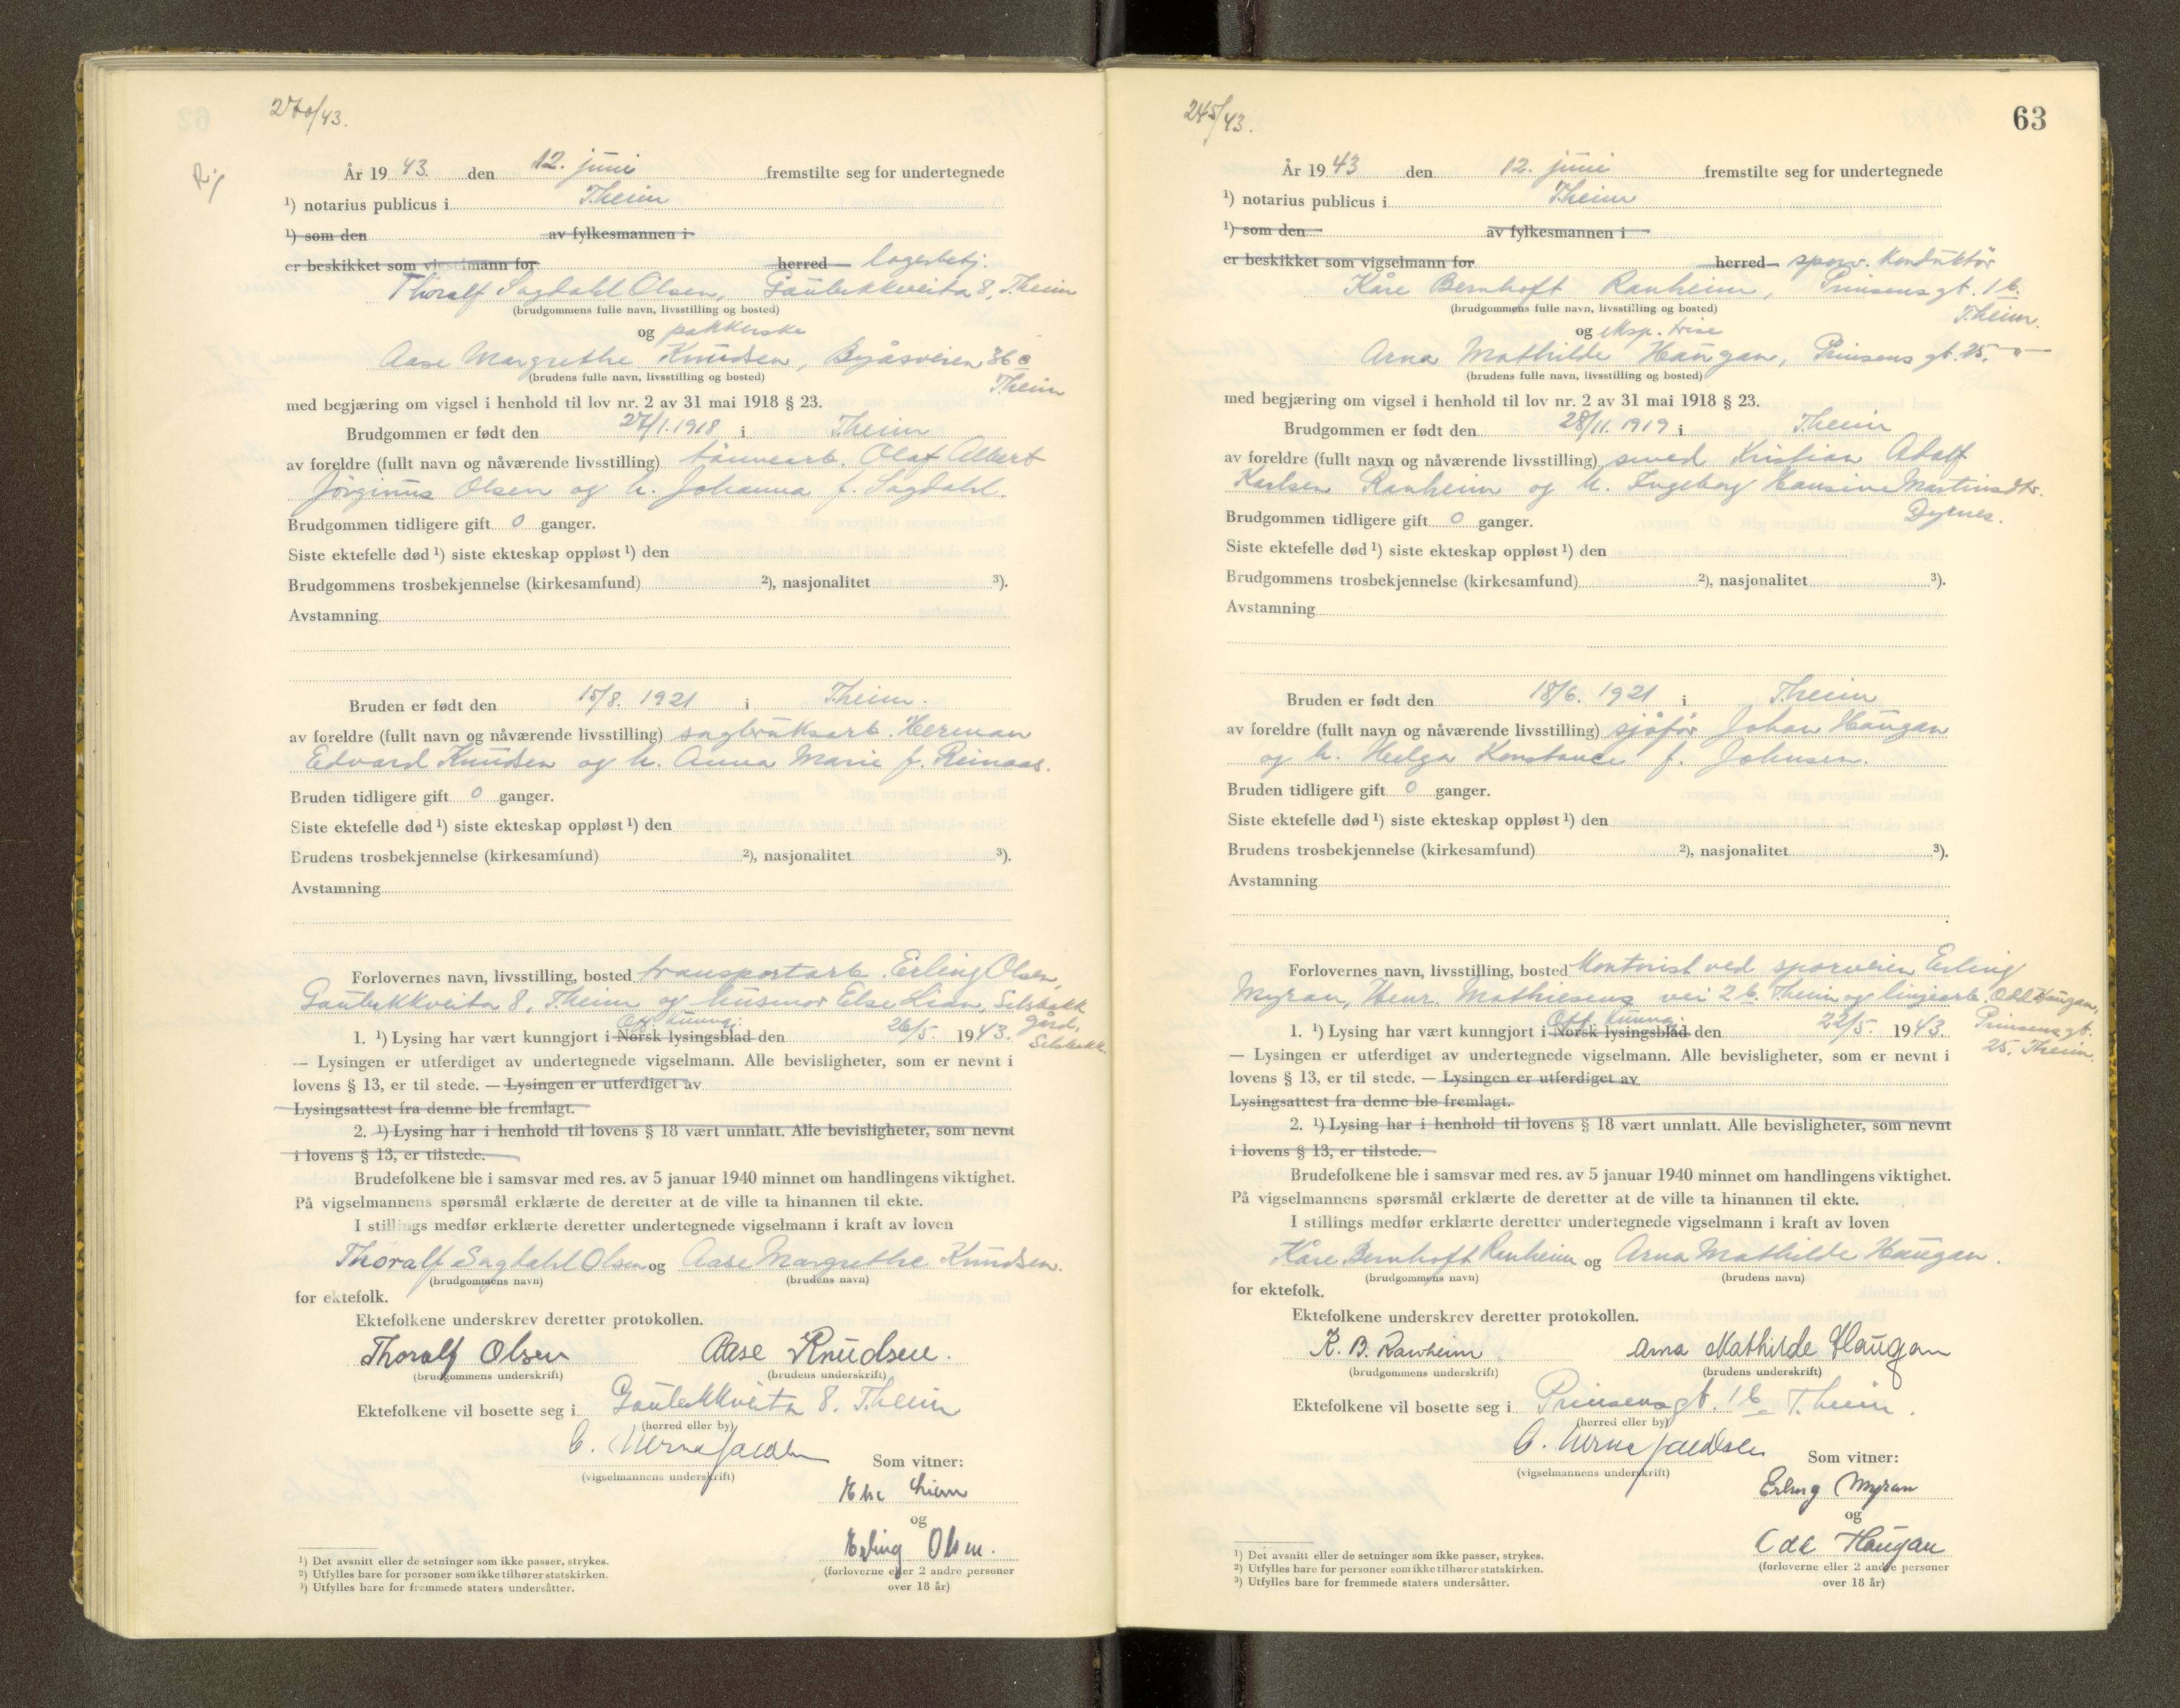 270/43.
År 19 43. den 12. juni fremstilte seg for undertegnede
¹) notarius publicus i Theim
¹) som den av fylkesmannen i
er beskikket som vigselmann for herred lagerbetj.
Thoralf Sagdahl Olsen, Gaubekkveita 8, Theim
(brudgommens fulle navn, livsstilling og bosted)
og pakkerske
Aase Margrethe Knudsen, Byåsveien 36 c
(brudens fulle navn, livsstilling og bosted) Theim
med begjæring om vigsel i henhold til lov nr. 2 av 31 mai 1918 § 23.
Brudgommen er født den 27/1. 1918 i Theim
av foreldre (fullt navn og nåværende livsstilling) tønnearb. Olaf Albert
Jørginus Olsen og h. Johanna f. Sagdahl.
Brudgommen tidligere gift 0 ganger.
Siste ektefelle død ¹) siste ekteskap oppløst ¹) den
Brudgommens trosbekjennelse (kirkesamfund) ²), nasjonalitet ³).
Avstamning
Bruden er født den 15/8. 1921 i Theim.
av foreldre (fullt navn og nåværende livsstilling) sagbruksarb. Herman
Edvard Knudsen og h. Anna Marie f. Reinaas.
Bruden tidligere gift 0 ganger.
Siste ektefelle død ¹) siste ekteskap oppløst ¹) den
Brudens trosbekjennelse (kirkesamfund) ²), nasjonalitet ³).
Avstamning
Forlovernes navn, livsstilling, bosted transportarb. Erling Olsen,
Gaubekkveita 8, Theim og husmor Else Lian, Selsbakk
gård,
Selsbakk.
Off. kunngj.
1. ¹) Lysing har vært kunngjort i Norsk lysingsblad den 26/5. 1943.
— Lysingen er utferdiget av undertegnede vigselmann. Alle bevisligheter, som er nevnt i
lovens § 13, er til stede. — Lysingen er utferdiget av
Lysingsattest fra denne ble fremlagt.
2. ¹) Lysing har i henhold til lovens § 18 vært unnlatt. Alle bevisligheter, som nevnt
i lovens § 13, er tilstede.
Brudefolkene ble i samsvar med res. av 5 januar 1940 minnet om handlingens viktighet.
På vigselmannens spørsmål erklærte de deretter at de ville ta hinannen til ekte.
I stillings medfør erklærte deretter undertegnede vigselmann i kraft av loven
Thoralf Sagdahl Olsen og Aase Margrethe Knudsen.
(brudgommens navn) (brudens navn)
for ektefolk.
Ektefolkene underskrev deretter protokollen.
Thoralf Olsen Aase Knudsen.
(brudgommens underskrift) (brudens underskrift)
Ektefolkene vil bosette seg i Gaubekkveita 8. Theim
(herred eller by)
(vigselmannens underskrift)
Som vitner:
Else
og
Erling Olsen.
(forloverne eller 2 andre personer
over 18 år)
¹) Det avsnitt eller de setninger som ikke passer, strykes.
²) Utfylles bare for personer som ikke tilhører statskirken.
³) Utfylles bare for fremmede staters undersåtter.
245/43.
63
År 19 43 den 12. juni fremstilte seg for undertegnede
¹) notarius publicus i Theim
¹) som den av fylkesmannen i
er beskikket som vigselmann for herred sporv. konduktør
Kåre Bernhoft Ranheim, Prinsens gt. 1 b.
(brudgommens fulle navn, livsstilling og bosted) Theim.
og eksp. trise
Arna Mathilde Haugan, Prinsens gt. 25, -"-
(brudens fulle navn, livsstilling og bosted)
med begjæring om vigsel i henhold til lov nr. 2 av 31 mai 1918 § 23.
Brudgommen er født den 28/11. 1919 i Theim
av foreldre (fullt navn og nåværende livsstilling) smed Kristian Adolf
Karlsen Ranheim og h. Ingeborg Hansine Martinsdtr.
Dyrnes.
Brudgommen tidligere gift 0 ganger.
Siste ektefelle død ¹) siste ekteskap oppløst ¹) den
Brudgommens trosbekjennelse (kirkesamfund) ²), nasjonalitet ³).
Avstamning
Bruden er født den 18/6. 1921 i Theim
av foreldre (fullt navn og nåværende livsstilling) sjåfør Johan Haugan
og h. Helga Konstance f. Johnsen.
Bruden tidligere gift 0 ganger.
Siste ektefelle død ¹) siste ekteskap oppløst ¹) den
Brudens trosbekjennelse (kirkesamfund) ²), nasjonalitet ³).
Avstamning
Forlovernes navn, livsstilling, bosted Kontorist ved sporveien Erling
Myran, Henr. Mathiesens vei 26. Theim og linjearb. Odd Haugan,
Prinsens gt.
25, Theim.
Off. kunngj.
1. ¹) Lysing har vært kunngjort i Norsk lysingsblad den 22/5. 1943.
— Lysingen er utferdiget av undertegnede vigselmann. Alle bevisligheter, som er nevnt i
lovens § 13, er til stede. — Lysingen er utferdiget av
Lysingsattest fra denne ble fremlagt.
2. ¹) Lysing har i henhold til lovens § 18 vært unnlatt. Alle bevisligheter, som nevnt
i lovens § 13, er tilstede.
Brudefolkene ble i samsvar med res. av 5 januar 1940 minnet om handlingens viktighet.
På vigselmannens spørsmål erklærte de deretter at de ville ta hinannen til ekte.
I stillings medfør erklærte deretter undertegnede vigselmann i kraft av loven
Kåre Bernhoft Ranheim og Arna Mathilde Haugan.
(brudgommens navn) (brudens navn)
for ektefolk.
Ektefolkene underskrev deretter protokollen.
K. B. Ranheim Arna Mathilde Haugan
(brudgommens underskrift) (brudens underskrift)
Ektefolkene vil bosette seg i Prinsens gt. 1 b Theim.
(herred eller by)
(vigselmannens underskrift)
Som vitner:
Erling Myran
og
Odd Haugan
(forloverne eller 2 andre personer
over 18 år)
¹) Det avsnitt eller de setninger som ikke passer, strykes.
²) Utfylles bare for personer som ikke tilhører statskirken.
³) Utfylles bare for fremmede staters undersåtter.